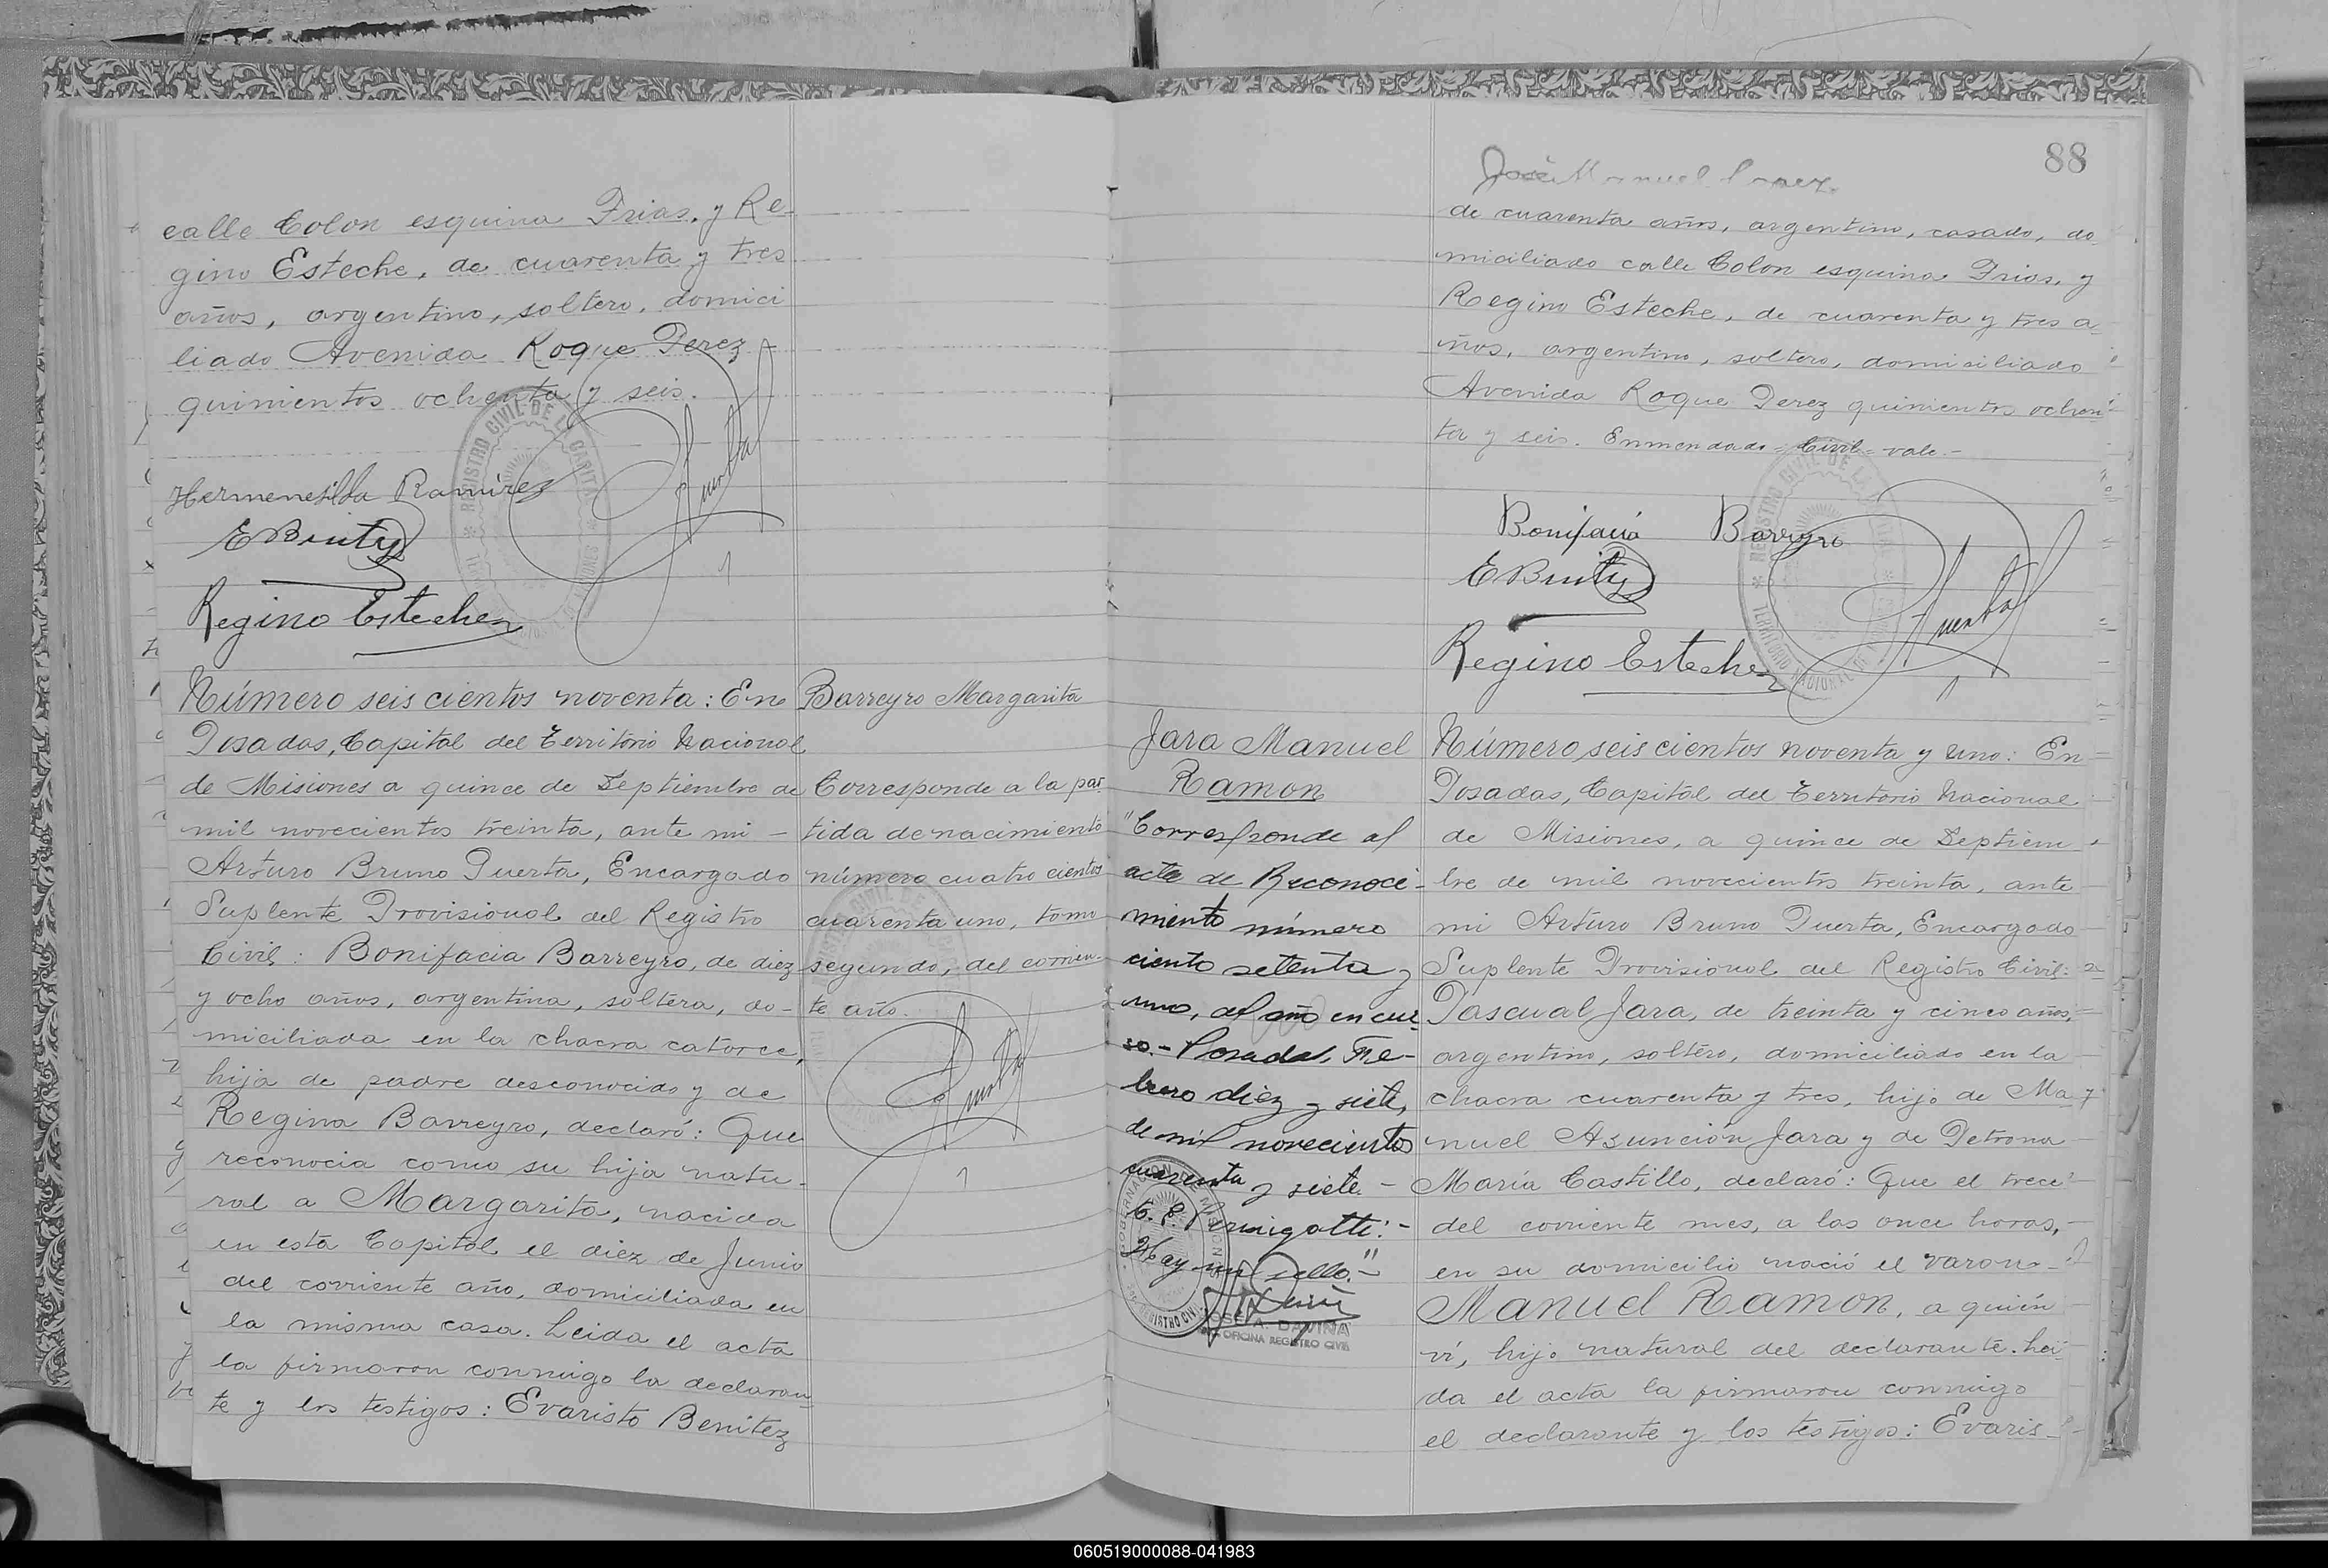 calle Colon esquina Frias, y Re-
gino Esteche, de cuarenta y tres
años, argentino, soltero, domici
liado Avenida Roque Perez
quinientos ochenta y seis.
REGISTRO CIVIL DE LA CAPITAL
Hermenesilda Ramirez
E Benitez
Regino Esteche
Número seiscientos noventa: En
Posadas, Capital del Territorio Nacional
de Misiones a quince de Septiembre de
mil novecientos treinta, ante mi -
Arturo Bruno Puerta, Encargado
Suplente Provisional del Registro
Civil: Bonifacia Barreyro, de diez
y ocho años, argentina, soltera, do-
miciliada en la chacra catorce,
hija de padre desconocido y de
Regina Barreyro, declaró: Que
reconocia como su hija natu-
ral a Margarita, nacida
en esta Capital el diez de Junio
del corriente año, domiciliada en
la misma casa. Leida el acta
la firmaron conmigo la declaran-
te y los testigos: Evaristo Benitez
Barreyro Margarita
Corresponde a la par
tida de nacimiento
número cuatro cientos
cuarenta uno, tomo
segundo, del corrien-
te año.
88
José Manuel
de cuarenta años, argentino, casado, do
miciliado calle Colon esquina Frias, y
Regino Esteche, de cuarenta y tres a
ños, argentino, soltero, domiciliado
Avenida Roque Perez quinientos ochen-
ta y seis. Enmendado = Civil = vale.-
Bonifacia Barreyro
E Benitez
Regino Esteche
REGISTRO CIVIL DE LA
TERRITORIO NACIONAL
Jara Manuel
Ramon
"Corresponde al
acta de Reconoci-
miento número
ciento setenta y
uno, del año en cur-
so.- Posadas, Fe-
brero diez y siete,
de mil novecientos
cuarenta y siete.-
Hay un sello.-"
GOBERNACION DE MISIONES
REGISTRO CIVIL
JOSE A. DAVIÑA
OFICINA REGISTRO CIVIL
Número seiscientos noventa y uno: En
Posadas, Capital del Territorio Nacional
de Misiones, a quince de Septiem
bre de mil novecientos treinta, ante
mi Arturo Bruno Puerta, Encargado
Suplente Provisional del Registro Civil:
Pascual Jara, de treinta y cinco años,
argentino, soltero, domiciliado en la
chacra cuarenta y tres, hijo de Ma-
nuel Asunción Jara y de Petrona
María Castillo, declaró: Que el trece
del corriente mes, a las once horas,
en su domicilio nació el varon
Manuel Ramon, a quién
ví, hijo natural del declarante. Leí
da el acta la firmaron conmigo
el declarante y los testigos: Evaris-
060519000088-041983